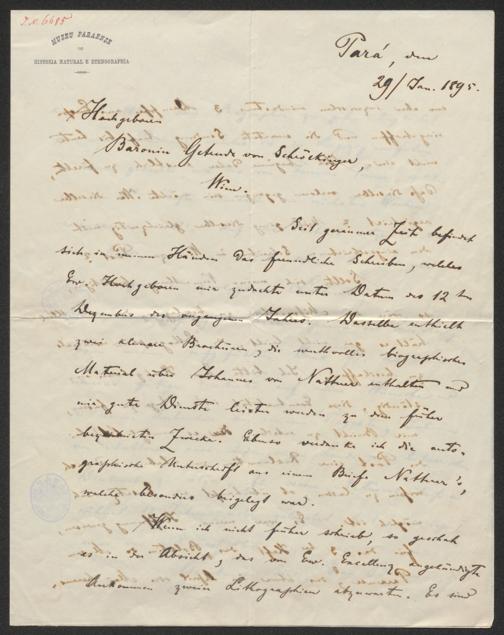 I.N. 6685
MUZEU PARAENSE
DE
HISTORIA NATURAL E ETHNOGRAPHIA
Pará, den
29/Jan. 1895.
Hochgeboren
Baronin Gertrude von Schröckinger,
Wien.
Seit geraumer Zeit befindet
sich in meinen Händen das freundliche Schreiben, welches
Ew. Hochgeboren mir zudachte unter Datum des 12ten
Dezember des vergangenen Jahres. Dasselbe enthielt
zwei kleinere Brochüren, die werthvolles biographisches
Material über Johannes von Natterer enthalten und
mir gute Dienste leisten werden zu dem früher
bezeichneten Zwecke. Ebenso verdanke ich die auto-
graphische Unterschrift aus einem Briefe Natterer's,
welche besonders beigelegt war.
Wenn ich nicht früher schrieb, so geschah
es in der Absicht, das von Ew. Excellenz angekündigte
Ankommen zweier Lithographien abzuwarten. Es sind